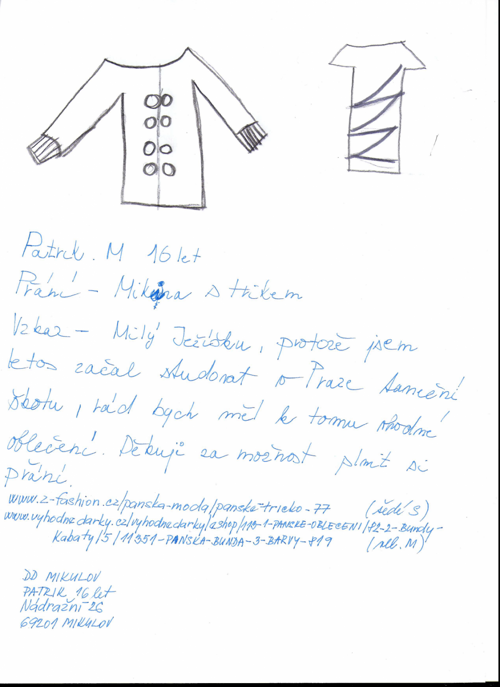 Patrik. M 16 let
Přání - Mikina s trikem
Vzkaz - Milý Ježíšku, protože jsem
letos začal studovat v Praze taneční
školu, rád bych měl k tomu vhodné
oblečení. Děkuji za možnost plnit si
přání.
www.z-fashion.cz/panska-moda/panske-tricko-77 (šedé S)
www.vyhodne.darky.cz/vyhodnedarky/eshop/113-1-PANSKE-OBLECENI/82-2-Bundy-
Kabaty/5/11351-PANSKA-BUNDA-3-BARVY-819 (vel. M)
DD MIKULOV
PATRIK 16 let
Nádražní 26
69201 MIKULOV